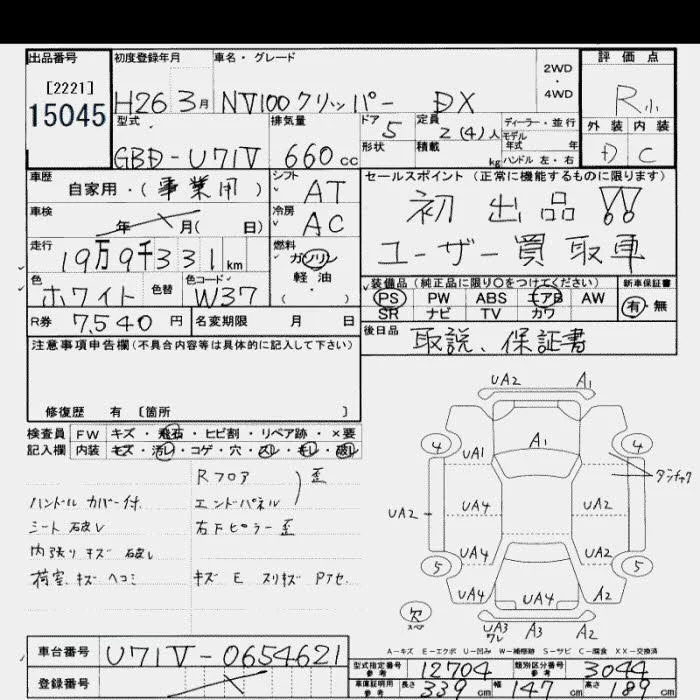 出品番号 初度登録年月 車名・グレード 2WD・4WD 評価点
[2221]
15045 H26 3月 NV100クリッパー DX R小
型式 排気量 ドア 5 定員 2(4)人 ディーラー・並行 外装 内装
モデル年式 年
GBD-U71V 660cc 形状 積載 kg ハンドル 左・右 D C
車歴 シフト セールスポイント(正常に機能するものに限ります)
自家用・(事業用) AT 初出品!!
車検 冷房
年 月( 日) AC ユーザー買取車
走行 燃料
19万9千331km ガソリン
軽油
( ・ )
色 色替 色コード 装備品(純正品に限り○をつけてください) 新車保証書
ホワイト W37 PS PW ABS エアB AW 有・無
SR ナビ TV カワ
R券 7,540円 名変期限 月 日 後日品 取説、保証書
注意事項申告欄(不具合内容等は具体的に記入して下さい)
修復歴 有 〔箇所 〕
検査員 FW キズ・飛石・ヒビ割・リペア跡・×要
記入欄 内装 キズ・汚レ・コゲ・穴・スレ・キレ・破レ
Rフロア 歪
ハンドルカバー付 エンドパネル
シート破レ 右Fピラー歪
内張りキズ破レ
荷室キズヘコミ キズ E スリキズ Pアセ
UA2 A1
4 UA1 A1 4
タンチョウ
UA2 UA4 UA2
UA4 UA2
5 5
UA4 UA4 A2
欠
スペア
UA3 A3 A2
ワレ
A-キズ E-エクボ U-凹み W-補修跡 S-サビ C-腐食 XX-交換済
車台番号 U71V-0654621
型式指定番号 参考 12704 類別区分番号 参考 3044
登録番号 車庫証明用 参考 長さ 339cm 幅 147cm 高さ 189cm